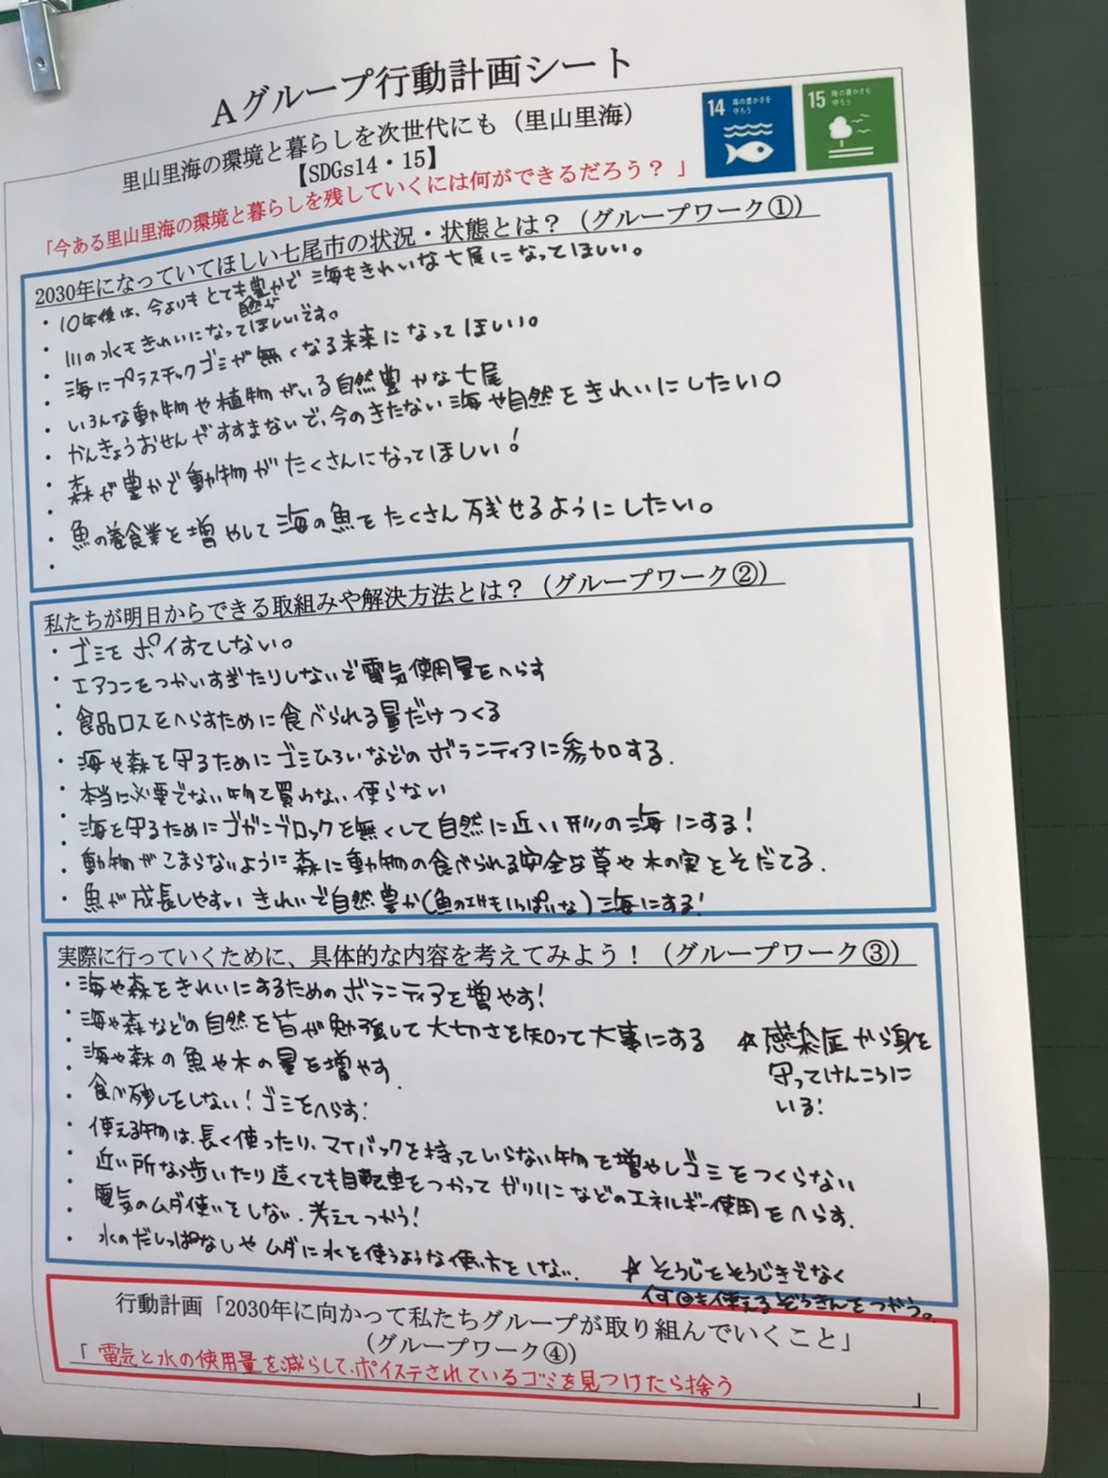 Aグループ行動計画シート
里山里海の環境と暮らしを次世代にも（里山里海）
【SDGs14・15】
「今ある里山里海の環境と暮らしを残していくには何ができるだろう？」
14 海の豊かさを
守ろう
15 陸の豊かさも
守ろう
2030年になっていてほしい七尾市の状況・状態とは？（グループワーク①）
・10年後は、今よりもとても自然が豊かで海もきれいな七尾になってほしい。
・川の水もきれいになってほしいです。
・海にプラスチックゴミが無くなる未来になってほしい。
・いろんな動物や植物がいる自然豊かな七尾
・かんきょうおせんがすすまないで、今のきたない海や自然をきれいにしたい。
・森が豊かで動物がたくさんになってほしい！
・魚の養食業を増やして海の魚をたくさん残せるようにしたい。
・
私たちが明日からできる取組みや解決方法とは？（グループワーク②）
・ゴミをポイすてしない。
・エアコンをつかいすぎたりしないで電気使用量をへらす
・食品ロスをへらすために食べられる量だけつくる
・海や森を守るためにゴミひろいなどのボランティアに参加する.
・本当に必要でない物を買わない使らない
・海を守るためにゴガンブロックを無くして自然に近い形の海にする！
・動物がこまらないように森に動物の食べられる安全な草や木の実をそだてる.
・魚が成長しやすいきれいで自然豊か(魚のエサもいっぱいな)海にする！
実際に行っていくために、具体的な内容を考えてみよう！（グループワーク③）
・海や森をきれいにするためのボランティアを増やす！
・海や森などの自然を皆が勉強して大切さを知って大事にする
・海や森の魚や木の量を増やす.
・食べ残しをしない！ゴミをへらす！
☆感染症から身を
守ってけんこうに
いる！
・使える物は、長く使ったり、マイバックを持っていらない物を増やしゴミをつくらない
・近い所なら歩いたり遠くても自転車をつかってガソリンなどのエネルギー使用をへらす.
・電気のムダ使いをしない.考えてつかう！
・水のだしっぱなしやムダに水を使うような使い方をしない.
☆そうじをそうじきでなく
何回も使えるぞうきんをつかう。
行動計画「2030年に向かって私たちグループが取り組んでいくこと」
（グループワーク④）
「電気と水の使用量を減らして、ポイステされているゴミを見つけたら捨う
」